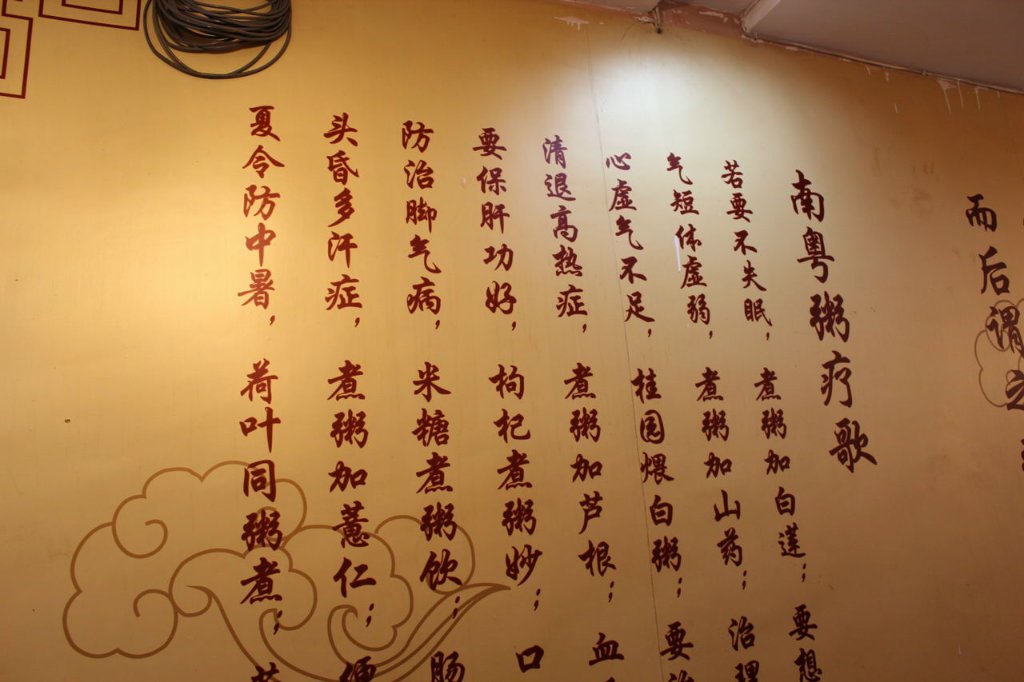 而后谓之
南粤粥疗歌
若要不失眠，煮粥加白莲；要想
气短体虚弱，煮粥加山药；治理
心虚气不足，桂园煨白粥；要治
清退高热症，煮粥加芦根；血
要保肝功好，枸杞煮粥妙；口
防治脚气病，米糖煮粥饮；肠
头昏多汗症，煮粥加薏仁；便
夏令防中暑，荷叶同粥煮；